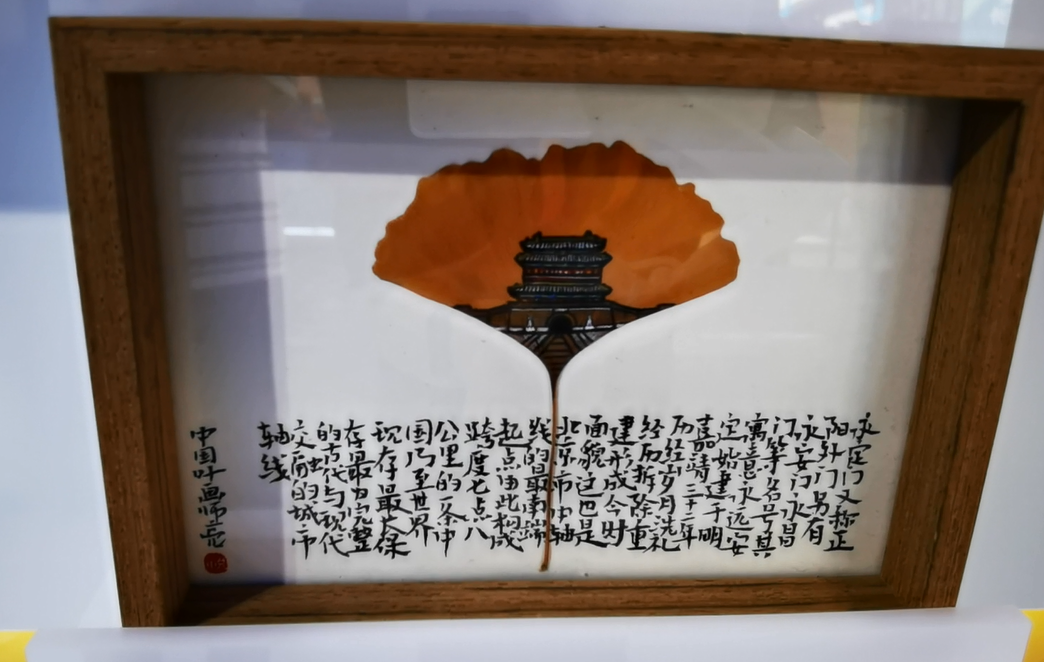 永定门又称正
阳外门另有
永安门永昌
门等名号其
寓意永远安
定始建于明
嘉靖三十二年
历经岁月洗礼
经历拆除重
建形成今时
面貌这也是
北京市中轴
线的最南端
起点由此构成
跨度七点八
公里的一条中
国乃至世界
现存最大保
存最为完整
的古代与现代
交融的城市
轴线
中国叶画师